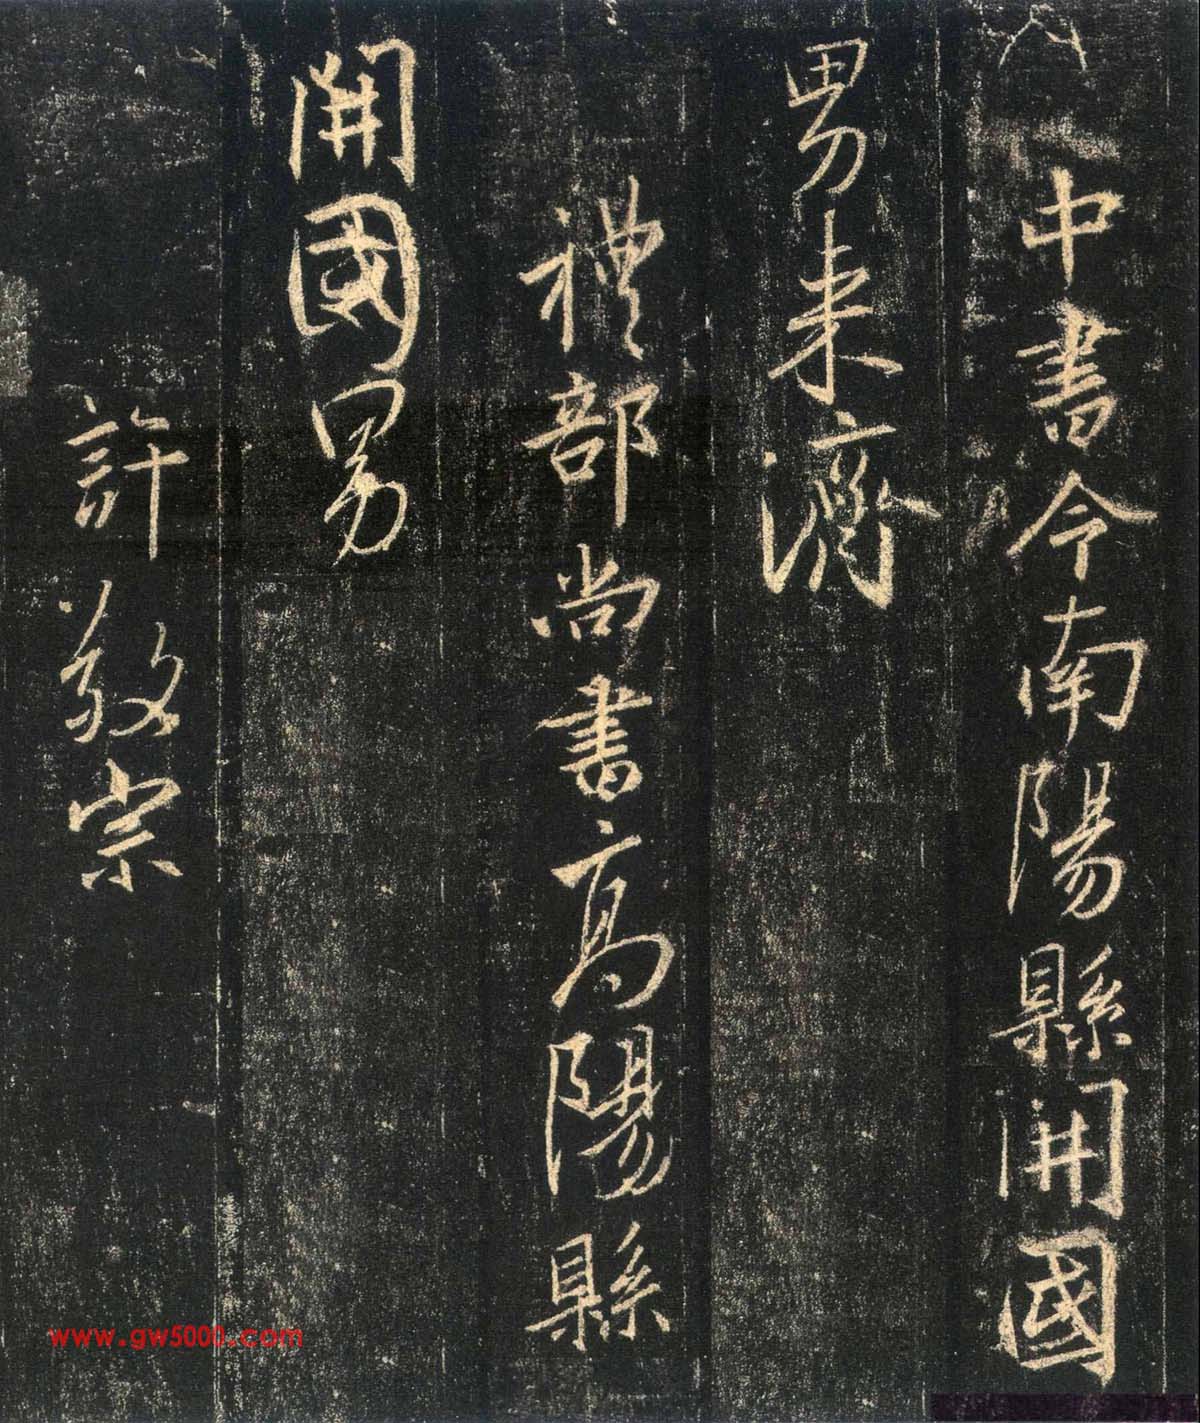 中書令南陽縣開國
男来濟
禮部尚書高陽縣
開國男
許敬宗
www.gw5000.com